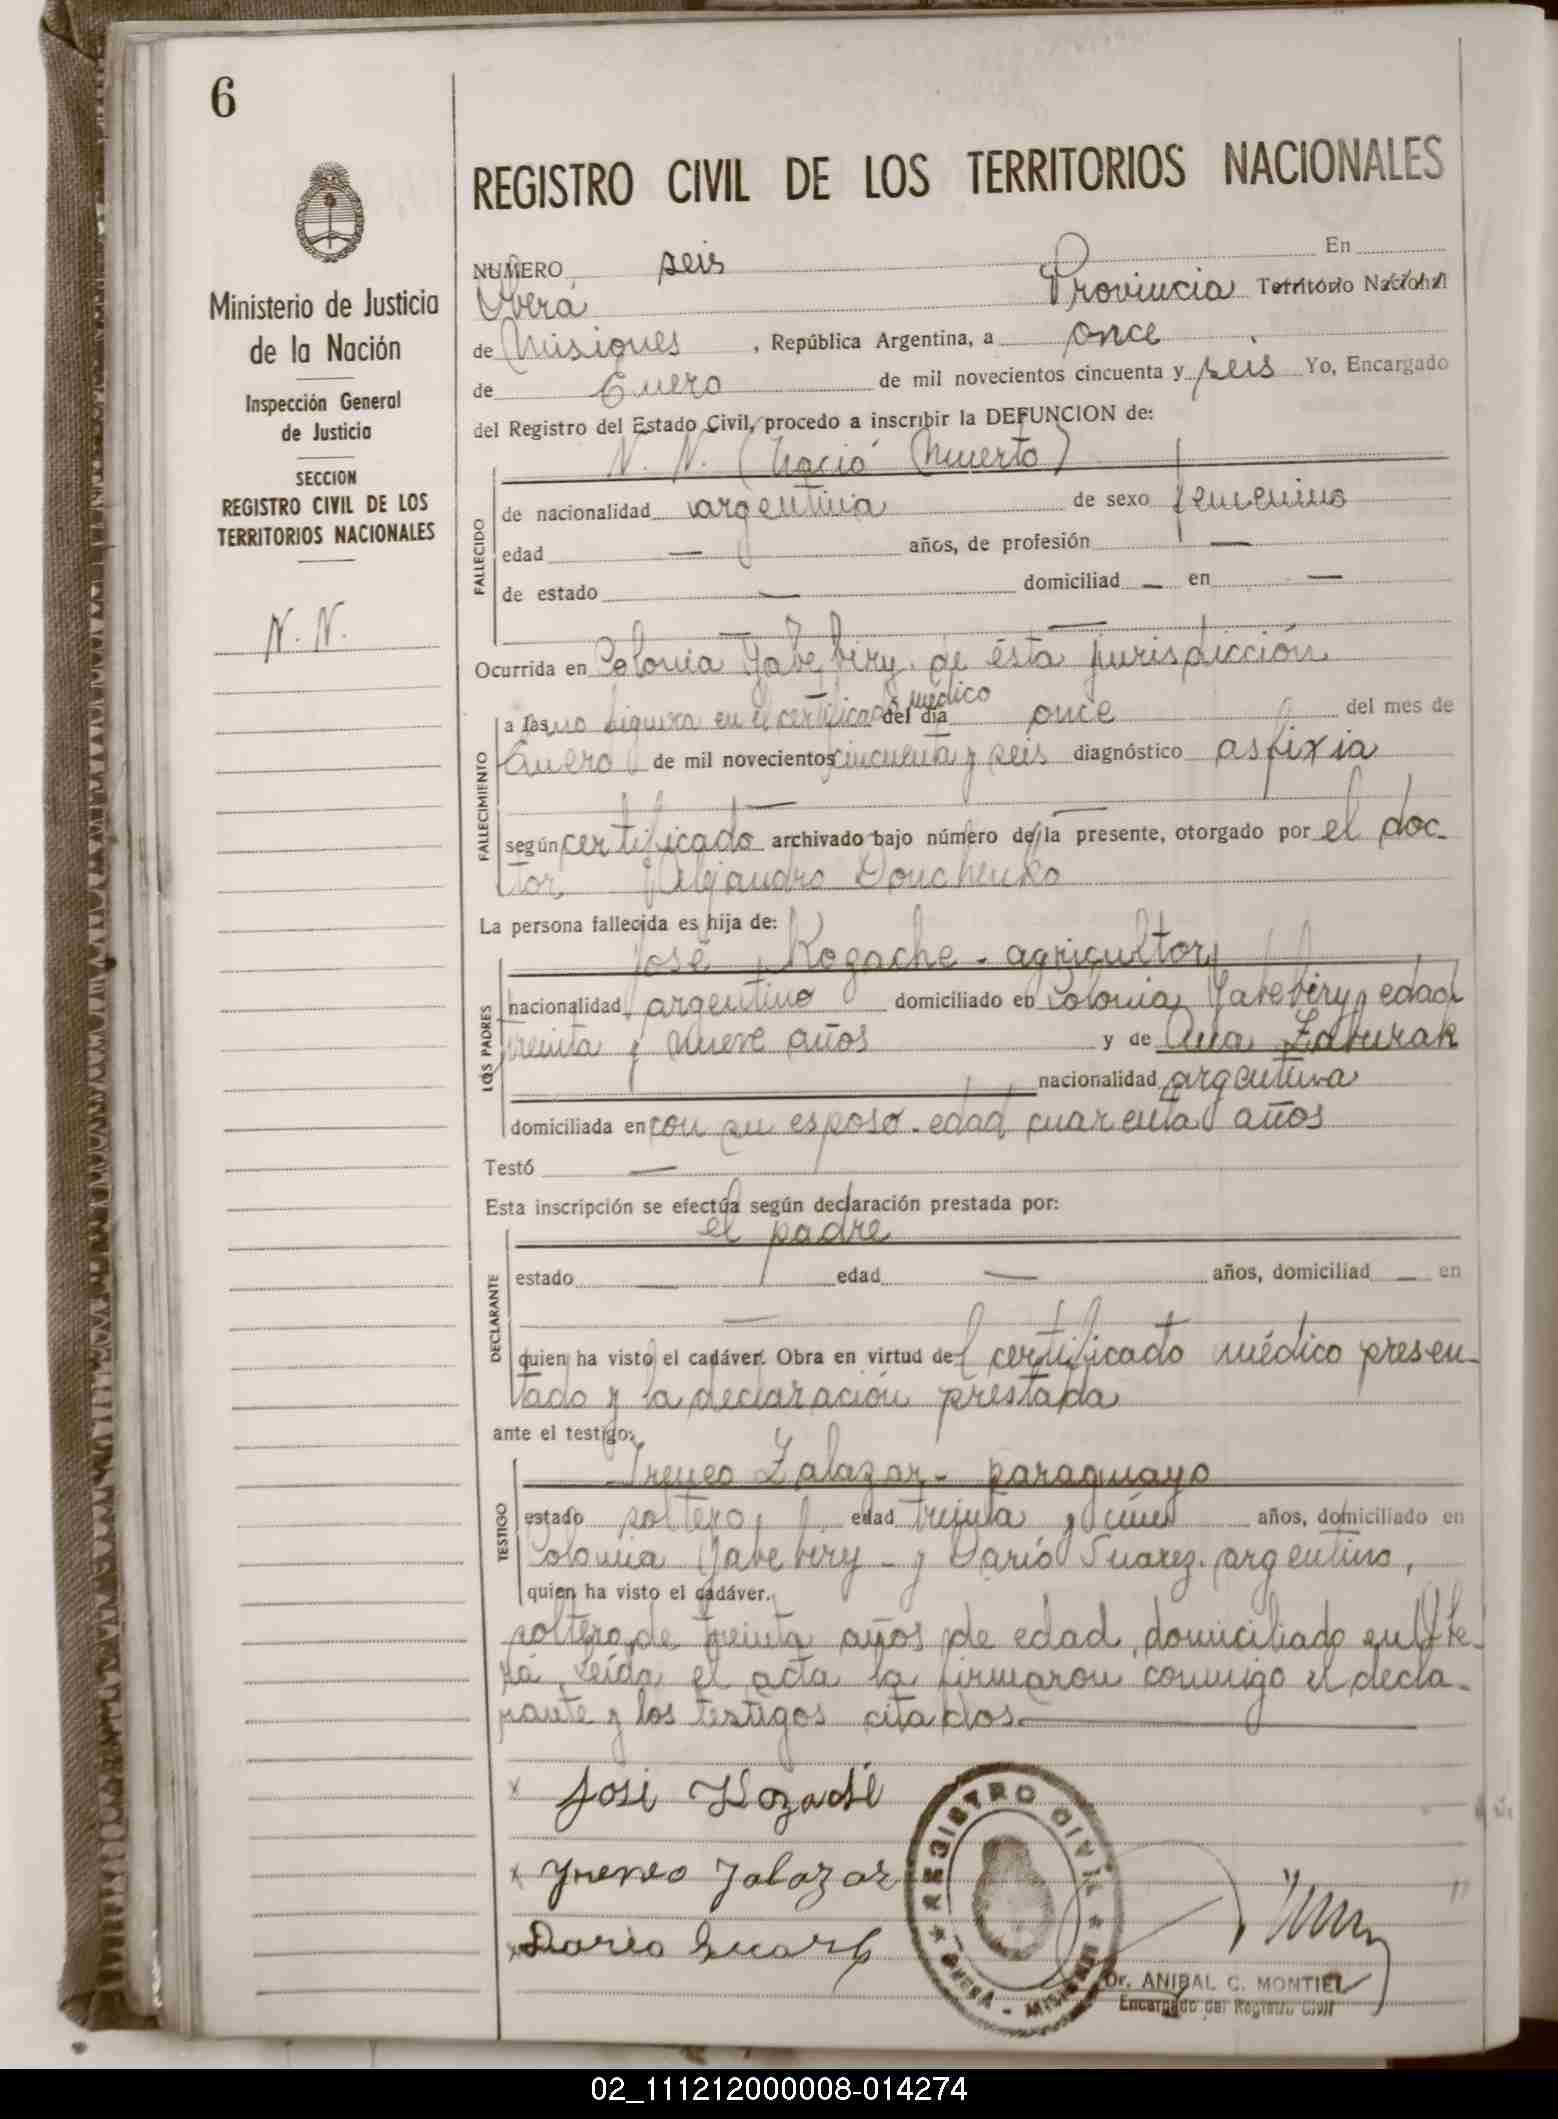 6
REGISTRO CIVIL DE LOS TERRITORIOS NACIONALES
Ministerio de Justicia
de la Nación
Inspección General
de Justicia
SECCION
REGISTRO CIVIL DE LOS
TERRITORIOS NACIONALES
N. N.
NUMERO seis En
Oberá Provincia Territorio Nacional
de Misiones , República Argentina, a once
de Enero de mil novecientos cincuenta y seis Yo, Encargado
del Registro del Estado Civil, procedo a inscribir la DEFUNCION de:
N. N. (Nació Muerto)
FALLECIDO
de nacionalidad argentina de sexo femenino
edad — años, de profesión —
de estado — domiciliad — en —
— —
Ocurrida en Colonia Yabebiry de ésta jurisdicción
FALLECIMIENTO
a las no figura en el certificado médico del día once del mes de
Enero de mil novecientos cincuenta y seis diagnóstico asfixia
— —
según certificado archivado bajo número de la presente, otorgado por el doc-
tor Alejandro Donchenko
La persona fallecida es hija de:
LOS PADRES
José Kozache - agricultor
nacionalidad argentino domiciliado en Colonia Yabebiry, edad
treinta y nueve años y de Ana Zaburak
nacionalidad argentina
domiciliada en con su esposo - edad cuarenta años
Testó —
Esta inscripción se efectúa según declaración prestada por:
DECLARANTE
el padre
estado — edad — años, domiciliad — en
—
quien ha visto el cadáver. Obra en virtud del certificado médico presen-
tado y la declaración prestada
ante el testigo:
TESTIGO
Ireneo Zalazar - paraguayo
estado soltero, edad treinta y años, domiciliado en
Colonia Yabebiry - y Darío Suarez. argentino,
quien ha visto el cadáver.
soltero, de treinta años de edad, domiciliado en Obe-
rá. Leída el acta la firmaron conmigo el decla-
rante y los testigos citados.
x José
x Yreneo Zalazar
x Dario Suarez
REGISTRO CIVIL
OBERÁ - MISIONES
Dr. ANIBAL C. MONTIEL
Encargado del Registro Civil
02_111212000008-014274